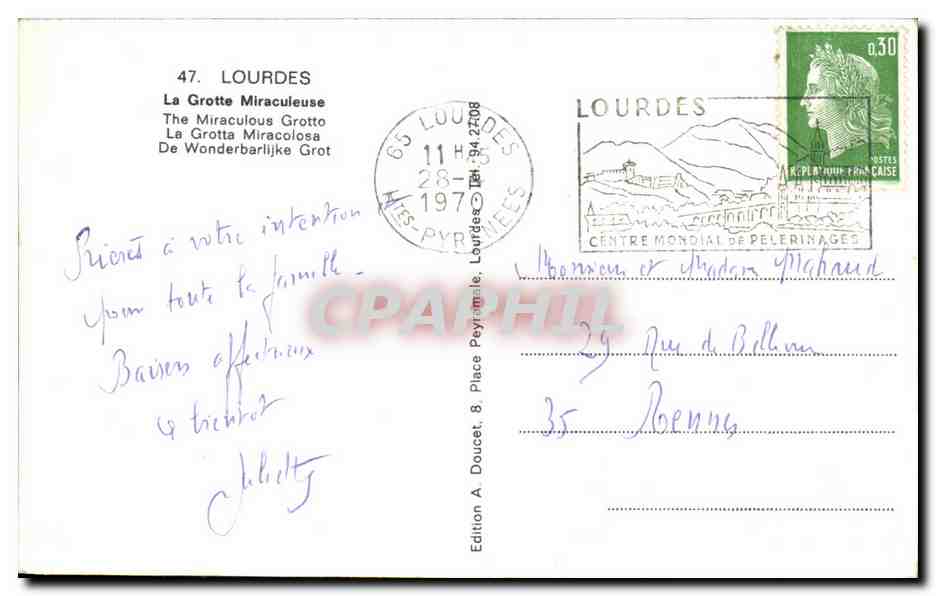 47. LOURDES
La Grotte Miraculeuse
The Miraculous Grotto
La Grotta Miracolosa
De Wonderbarlijke Grot
Prières à votre intention
pour toute la famille.
Baisers affectueux
à bientôt
Juliette
Edition A. Doucet, 8, Place Peyramale, Lourdes - Tél. 94.27.08
65 LOURDES
11 H
28-
197
HTES-PYRENEES
LOURDES
CENTRE MONDIAL DE PELERINAGES
0,30
POSTES
REPUBLIQUE FRANÇAISE
Monsieur et Madame
29 Rue de
35 Rennes
CPAPHIL